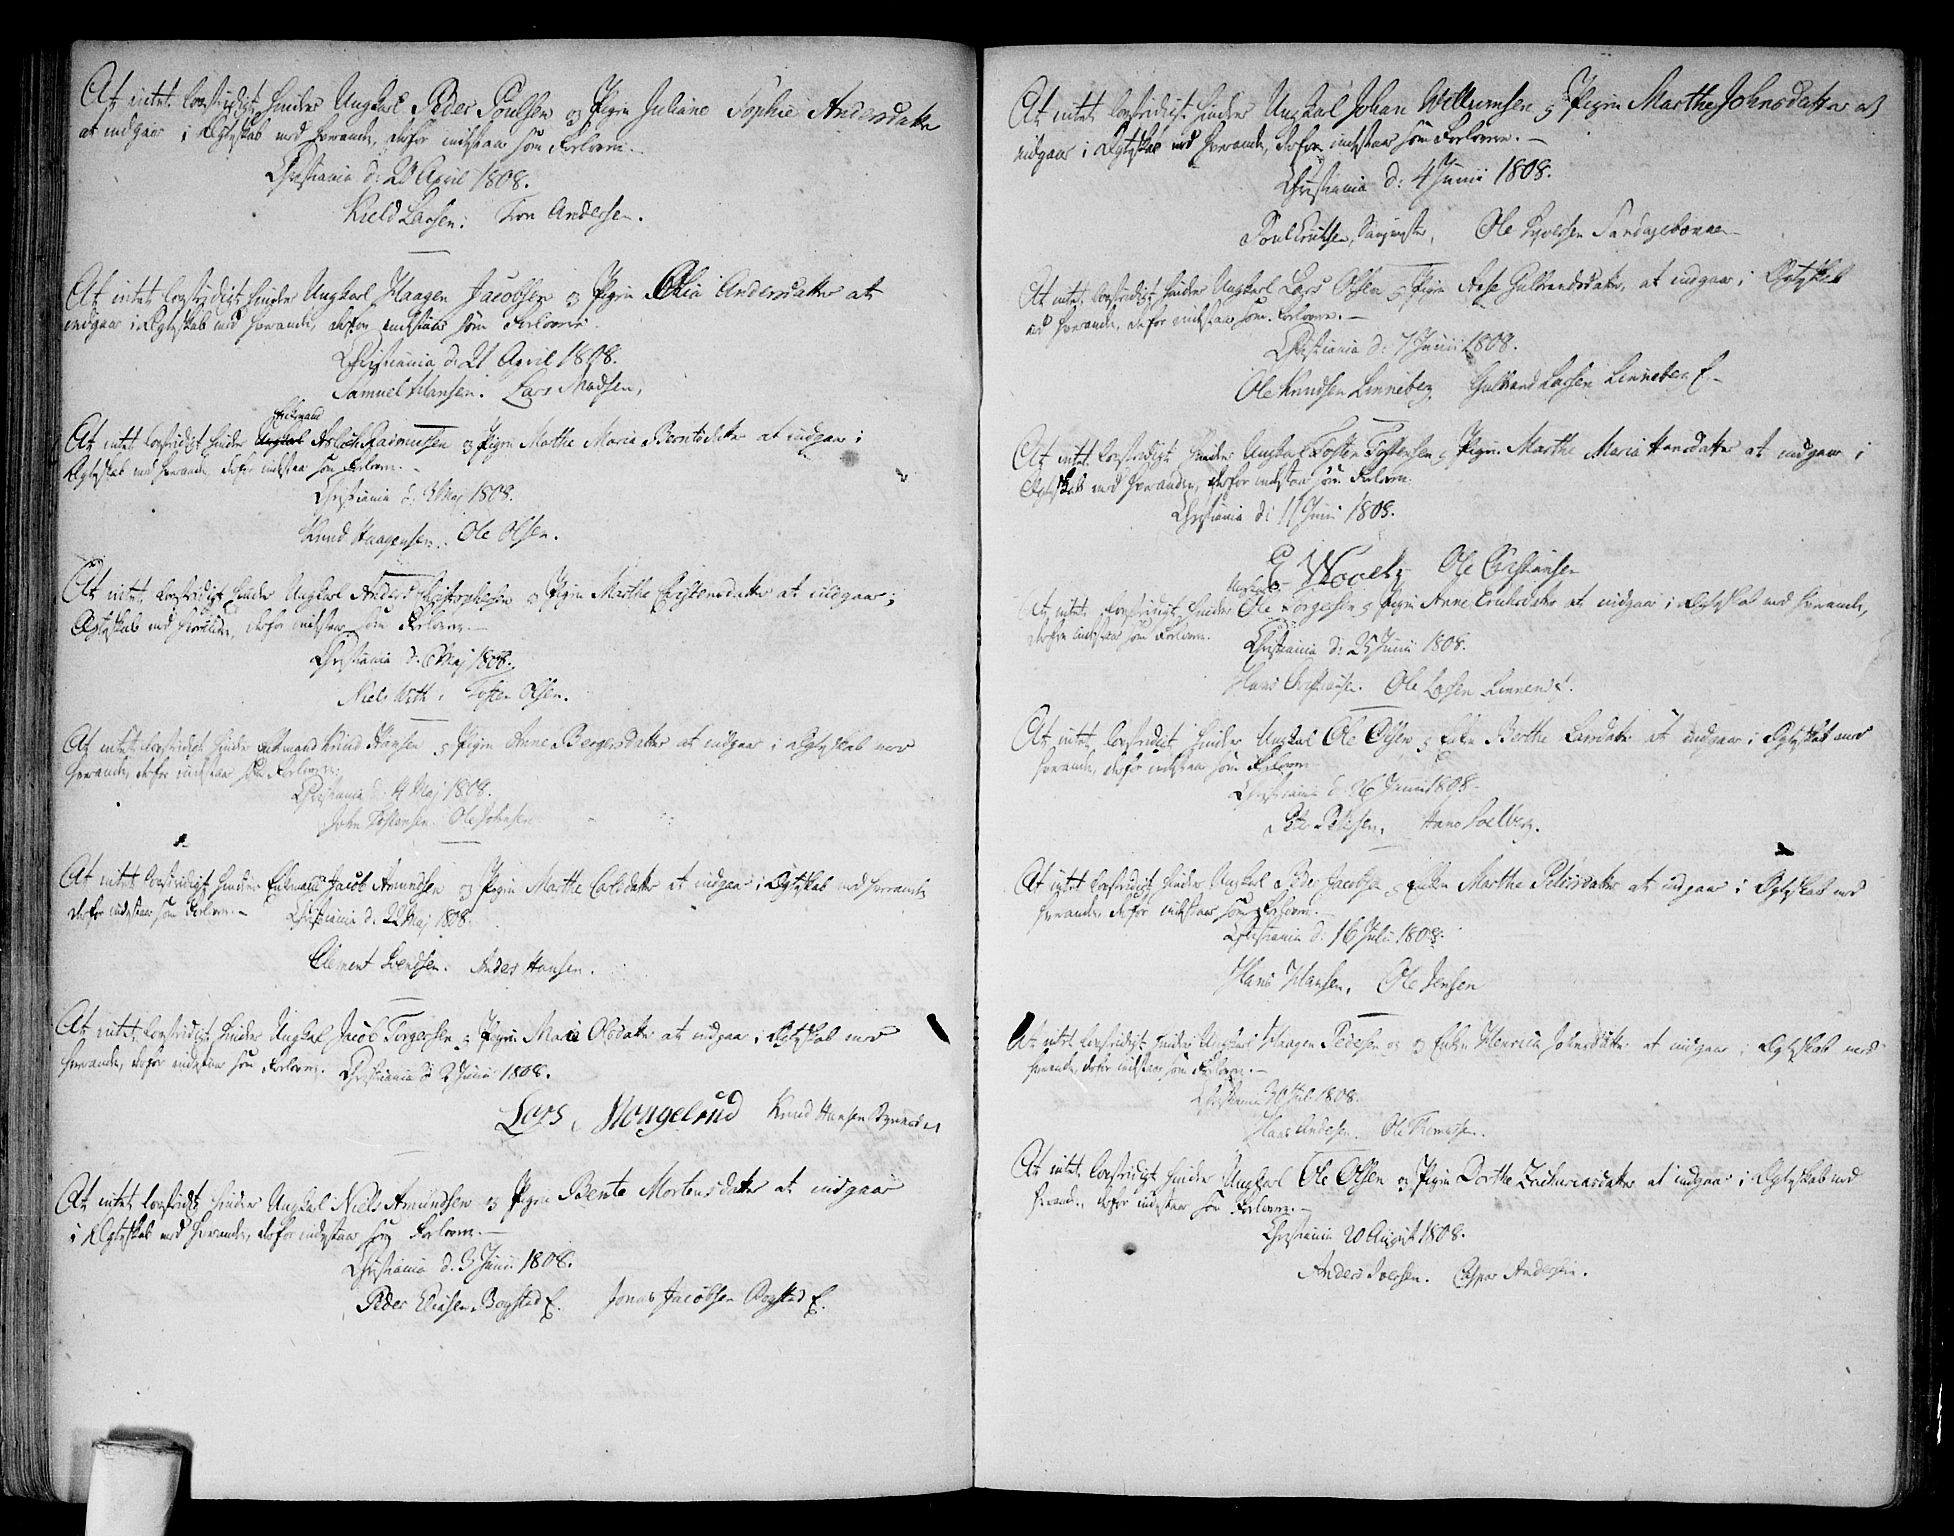 At intet lovstridigt hinder Ungkarl Peder Poulsen og Pigen Juliane Sophie Andersdatter
at indgaae i Ægteskab med hverandre, derfor indestaar som Forlovere.
Christiania d: 20 April 1808.
Kield Larsen. Iver Andersen.
At intet lovstridigt hinder Ungkarl Haagen Jacobsen og Pigen Andersdatter at
indgaae i Ægteskab med hverandre, derfor indestaar som Forlovere.
Christiania d. 21 April 1808.
Samuel Hansen. Lars Madsen,
Enkemand
At intet lovstridigt hinder Ungkarl Aslach Rasmussen og Pigen Marthe Maria Berntsdatter at indgaae i
Ægteskab med hverandre derfor indestaar som Forlovere.
Christiania d. 3 Maj 1808.
Knud Haagensen. Ole Olsen.
At intet lovstridigt hinder Ungkarl Anders Christophersen og Pigen Marthe Christensdatter at indgaae i
Ægteskab med hverandre, derfor indestaar som Forlovere.
Christiania d. 6 Maj 1808.
Niels Wæth. Tosten Olsen.
At intet lovstridigt hinder Enkemand Knud Hansen og Pigen Anne Bergersdatter at indgaae i Ægteskab med
hverandre, derfor indestaar som Forlovere.
Christiania d. 4 Maj 1808.
John Tostensen. Ole Johnsen
At intet lovstridigt hinder Enkemand Jacob Amundsen og Pigen Marthe Carlsdatter at indgaae i Ægteskab med hverandre
derfor indestaar som Forlovere.
Christiania d. 22 Maj 1808.
Clement Svendsen. Anders Hansen.
At intet lovstridigt hinder Ungkarl Jacob Torgersen og Pigen Maria Olsdatter at indgaae i Ægteskab med
hverandre, derfor indestaar som Forlovere. Christiania d 2 Junii 1808.
Lars Mongelrud Knud Hansen
At intet lovstridigt hinder Ungkarl Niels Amundsen og Pigen Bente Mortensdatter at indgaae
i Ægteskab med hverandre, derfor indestaar som Forlovere.
Christiania d. 3 Junii 1808.
Peder Eliasen Bogstad E. Jonas Jacobsen Bogstad E.
At intet lovstridigt hinder Ungkarl Johan Willumsen og Pigen Marthe Johnsdatter at
indgaae i Ægteskab med hverandre, derfor indestaar som Forlovere.
Christiania d: 4 Junii 1808.
Poul Knutsen, Ole Syversen
At intet lovstridigt hinder Ungkarl Lars Olsen og Pigen Aase Gulbrandsdatter, at indgaae i Ægteskab
med hverandre, derfor indestaar som Forlovere.
Christiania d: 7 Junii 1808.
Ole Knudsen Linneberg Gulbrand Larsen Linneberg E
At intet lovstridigt hinder Ungkarl Tosten Tostensen og Pigen Marthe Maria Hansdatter at indgaae i
Ægteskab med hverandre, derfor indestaar som Forlovere.
Christiania d: 11 Junii 1808.
Ole Christiansen
Ungkarl
At intet lovstridigt hinder Ole Torgersen og Pigen Anne Erichsdatter at indgaae i Ægteskab med hverandre,
derfor indestaar som Forlovere.
Christiania d: 25 Junii 1808.
Hans Christiansen. Ole Larsen
At intet lovstridigt hinder Ungkarl Ole Olsen og Enken Berthe Larsdatter at indgaae i Ægteskab med
hverandre, derfor indestaar som Forlovere
Christiania d: 26 Junii 1808.
Peter Petersen. Hans Soelberg.
At intet lovstridigt hinder Ungkarl Peder Jacobsen og Enken Marthe Petersdatter at indgaae i Ægteskab med
hverandre derfor indestaar som Forlovere.
Christiania d. 16 Julii 1808.
Hans Hansen. Ole Jensen
At intet lovstridigt hinder Ungkarl Haagen Pedersen og Enken Henrica Johnsdatter at indgaae i Ægteskab med
hverandre, derfor indestaar som Forlovere.
Christiania 30 Juli 1808.
Hans Andersen. Ole Thomesen.
At intet lovstridigt hinder Ungkarl Ole Olsen og Pigen Dorthe Zachariasdatter at indgaae i Ægteskab med
hverandre, derfor indestaar som Forlovere.
Christiania 20 August 1808.
Anders Iversen. Casper Andersen.